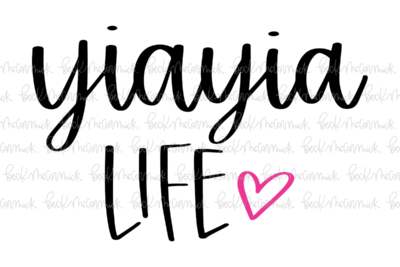 yiayia
LIFE